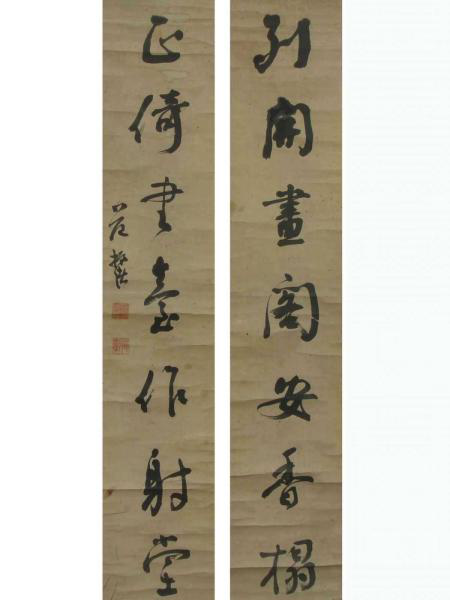 別開畫閣安香榻
正倚書臺作射堂